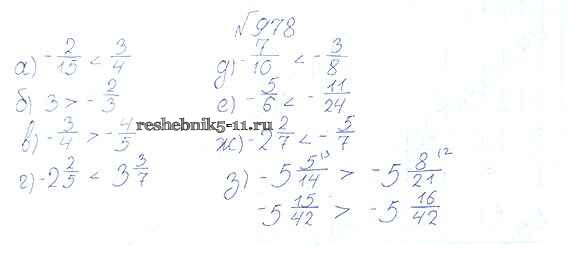 №978
а) -2/15 < 3/4
б) 3 > -2/3
в) -3/4 > -4/5
г) -2 2/5 < 3 3/7
д) -7/10 < -3/8
е) -5/6 < -11/24
ж) -2 2/7 < -5/7
з) -5 5/14 ^(3 > -5 8/21 ^(2
-5 15/42 > -5 16/42
reshebnik5-11.ru